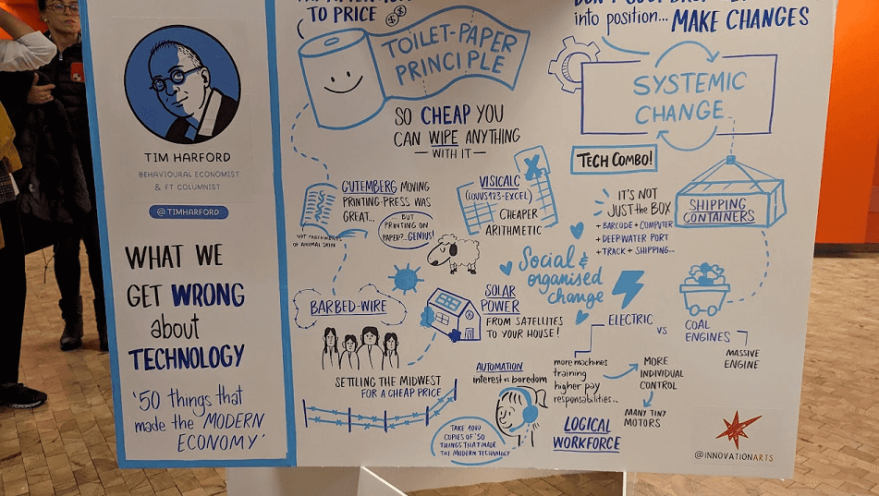 TIM HARFORD
BEHAVIOURAL ECONOMIST
& FT COLUMNIST
@TIMHARFORD
WHAT WE
GET WRONG
about
TECHNOLOGY
'50 things that
made the MODERN
ECONOMY'
TO PRICE
TOILET-PAPER
PRINCIPLE
SO CHEAP YOU
CAN WIPE ANYTHING
WITH IT
GUTEMBERG MOVING
PRINTING-PRESS WAS
GREAT...
BUT
PRINTING ON
PAPER?...GENIUS!
OF ANIMAL SKIN
VISICALC
CHEAPER
ARITHMETIC
BARBED-WIRE
SETTLING THE MIDWEST
FOR A CHEAP PRICE
SOLAR
POWER
FROM SATELLITES
TO YOUR HOUSE!
AUTOMATION
interest vs boredom
TAKE
COPIES OF '50
THINGS THAT MADE
THE MODERN TECHNOLOGY
into position... MAKE CHANGES
SYSTEMIC
CHANGE
TECH COMBO!
IT'S NOT
JUST THE BOX
+ BARCODE + COMPUTER
+ DEEP WATER PORT
+ TRACK + SHIPPING...
SHIPPING
CONTAINERS
Social &
organised
change
ELECTRIC
VS
COAL
ENGINES
MASSIVE
ENGINE
more machines
training
higher pay
responsabilities...
MORE
INDIVIDUAL
CONTROL
MANY TINY
MOTORS
LOGICAL
WORKFORCE
@INNOVATIONARTS